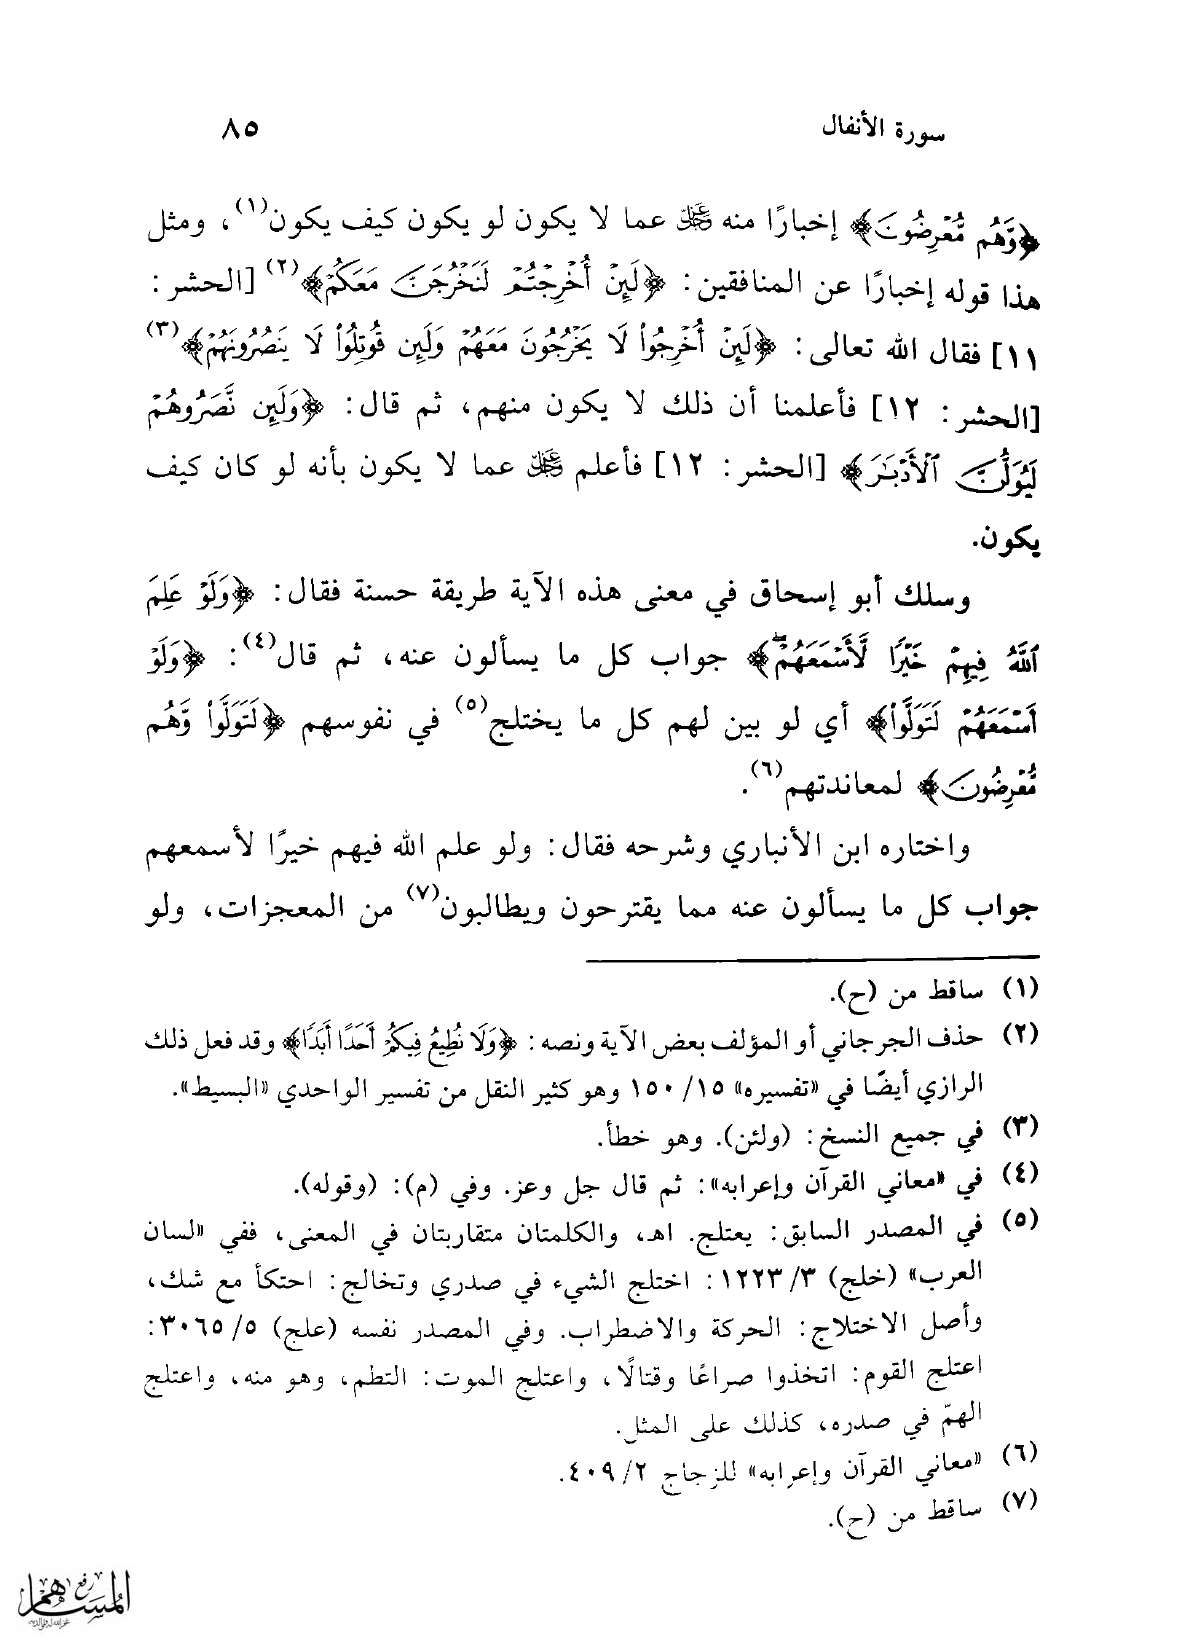 سورة الأنفال ٨٥
﴿وَّهُم مُّعْرِضُونَ﴾ إخبارًا منه ﷿ عما لا يكون لو يكون كيف يكون(١)، ومثل
هذا قوله إخبارًا عن المنافقين: ﴿لَئِنْ أُخْرِجْتُمْ لَنَخْرُجَنَّ مَعَكُمْ﴾(٢) [الحشر:
١١] فقال الله تعالى: ﴿لَئِنْ أُخْرِجُوا۟ لَا يَخْرُجُونَ مَعَهُمْ وَلَئِن قُوتِلُوا۟ لَا يَنصُرُونَهُمْ﴾(٣)
[الحشر: ١٢] فأعلمنا أن ذلك لا يكون منهم، ثم قال: ﴿وَلَئِن نَّصَرُوهُمْ
لَيُوَلُّنَّ ٱلْأَدْبَٰرَ﴾ [الحشر: ١٢] فأعلم ﷿ عما لا يكون بأنه لو كان كيف
يكون.
وسلك أبو إسحاق في معنى هذه الآية طريقة حسنة فقال: ﴿وَلَوْ عَلِمَ
ٱللَّهُ فِيهِمْ خَيْرًا لَّأَسْمَعَهُمْ ۖ﴾ جواب كل ما يسألون عنه، ثم قال(٤): ﴿وَلَوْ
أَسْمَعَهُمْ لَتَوَلَّوا۟﴾ أي لو بين لهم كل ما يختلج(٥) في نفوسهم ﴿لَتَوَلَّوا۟ وَّهُم
مُّعْرِضُونَ﴾ لمعاندتهم(٦).
واختاره ابن الأنباري وشرحه فقال: ولو علم الله فيهم خيرًا لأسمعهم
جواب كل ما يسألون عنه مما يقترحون ويطالبون(٧) من المعجزات، ولو
(١) ساقط من (ح).
(٢) حذف الجرجاني أو المؤلف بعض الآية ونصه: ﴿وَلَا نُطِيعُ فِيكُمْ أَحَدًا أَبَدًا﴾ وقد فعل ذلك
الرازي أيضًا في «تفسيره» ١٥/ ١٥٠ وهو كثير النقل من تفسير الواحدي «البسيط».
(٣) في جميع النسخ: (ولئن). وهو خطأ.
(٤) في «معاني القرآن وإعرابه»: ثم قال جل وعز. وفي (م): (وقوله).
(٥) في المصدر السابق: يعتلج. اهـ، والكلمتان متقاربتان في المعنى، ففي «لسان
العرب» (خلج) ٣/ ١٢٢٣: اختلج الشيء في صدري وتخالج: احتكأ مع شك،
وأصل الاختلاج: الحركة والاضطراب. وفي المصدر نفسه (علج) ٥/ ٣٠٦٥:
اعتلج القوم: اتخذوا صراعًا وقتالًا، واعتلج الموت: التطم، وهو منه، واعتلج
الهمّ في صدره، كذلك على المثل.
(٦) «معاني القرآن وإعرابه» للزجاج ٢/ ٤٠٩.
(٧) ساقط من (ح).
رفع
المساهم